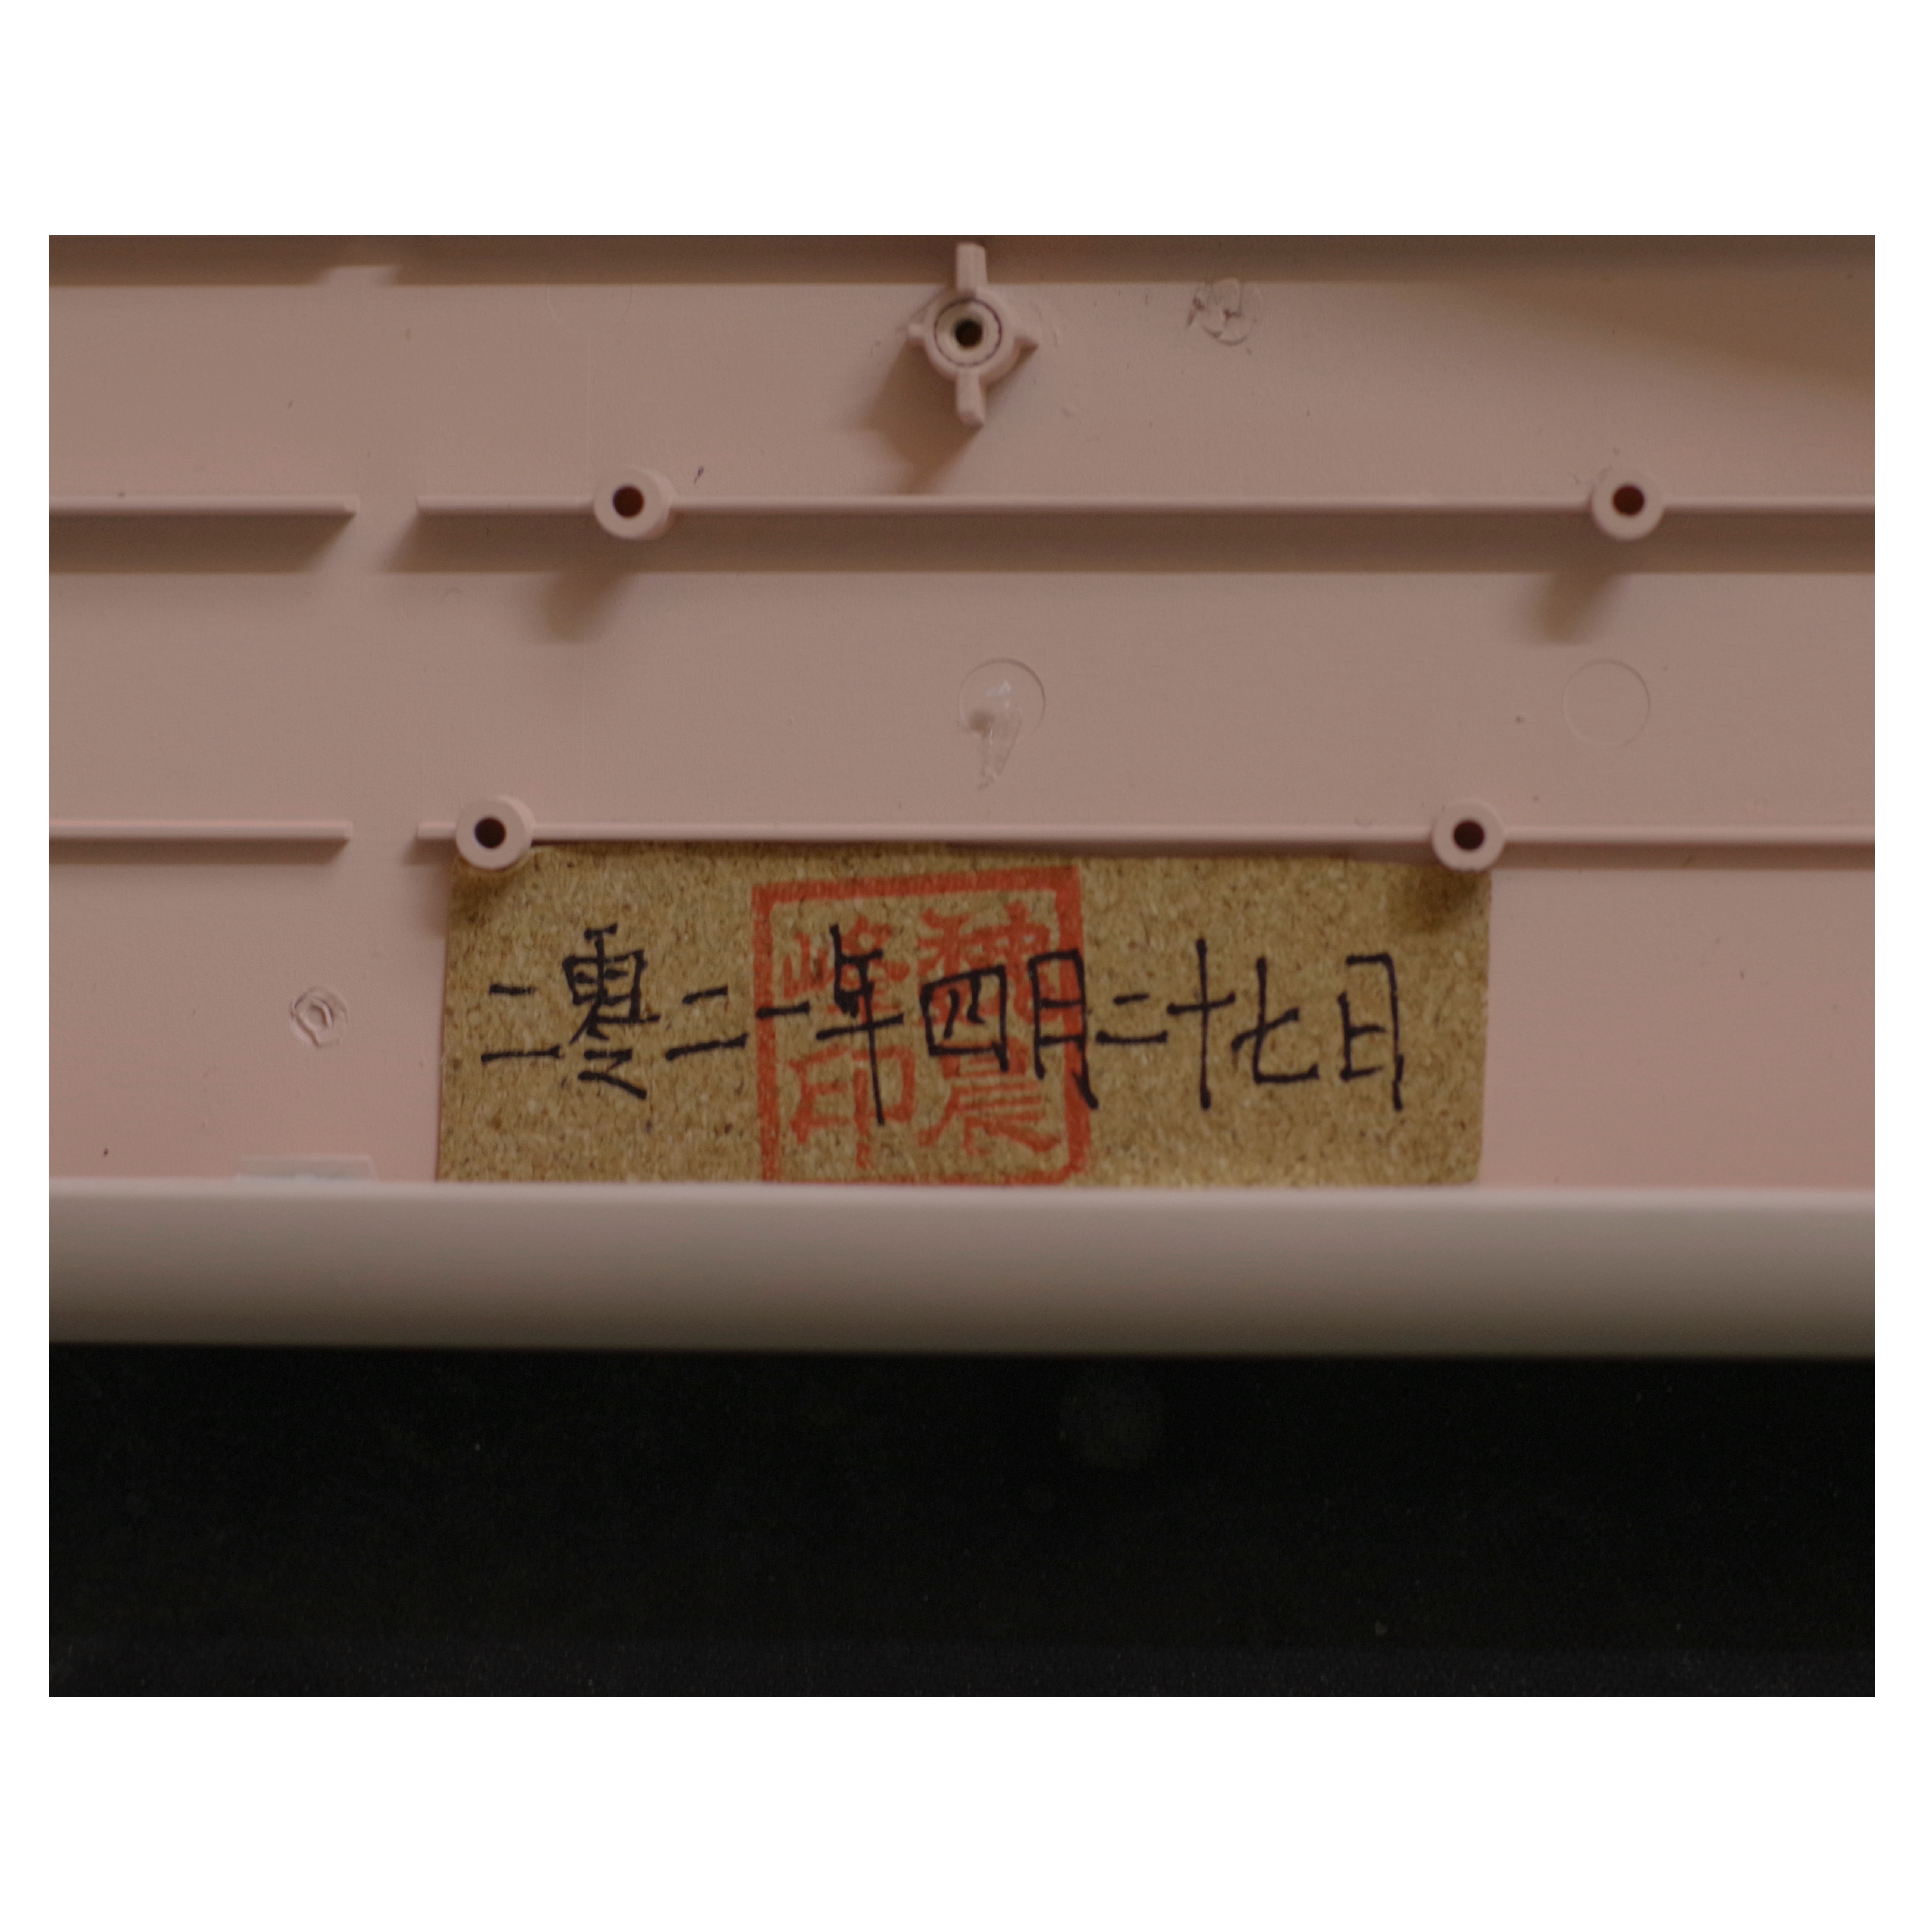 二零二一年四月二十七日
晨
峰印